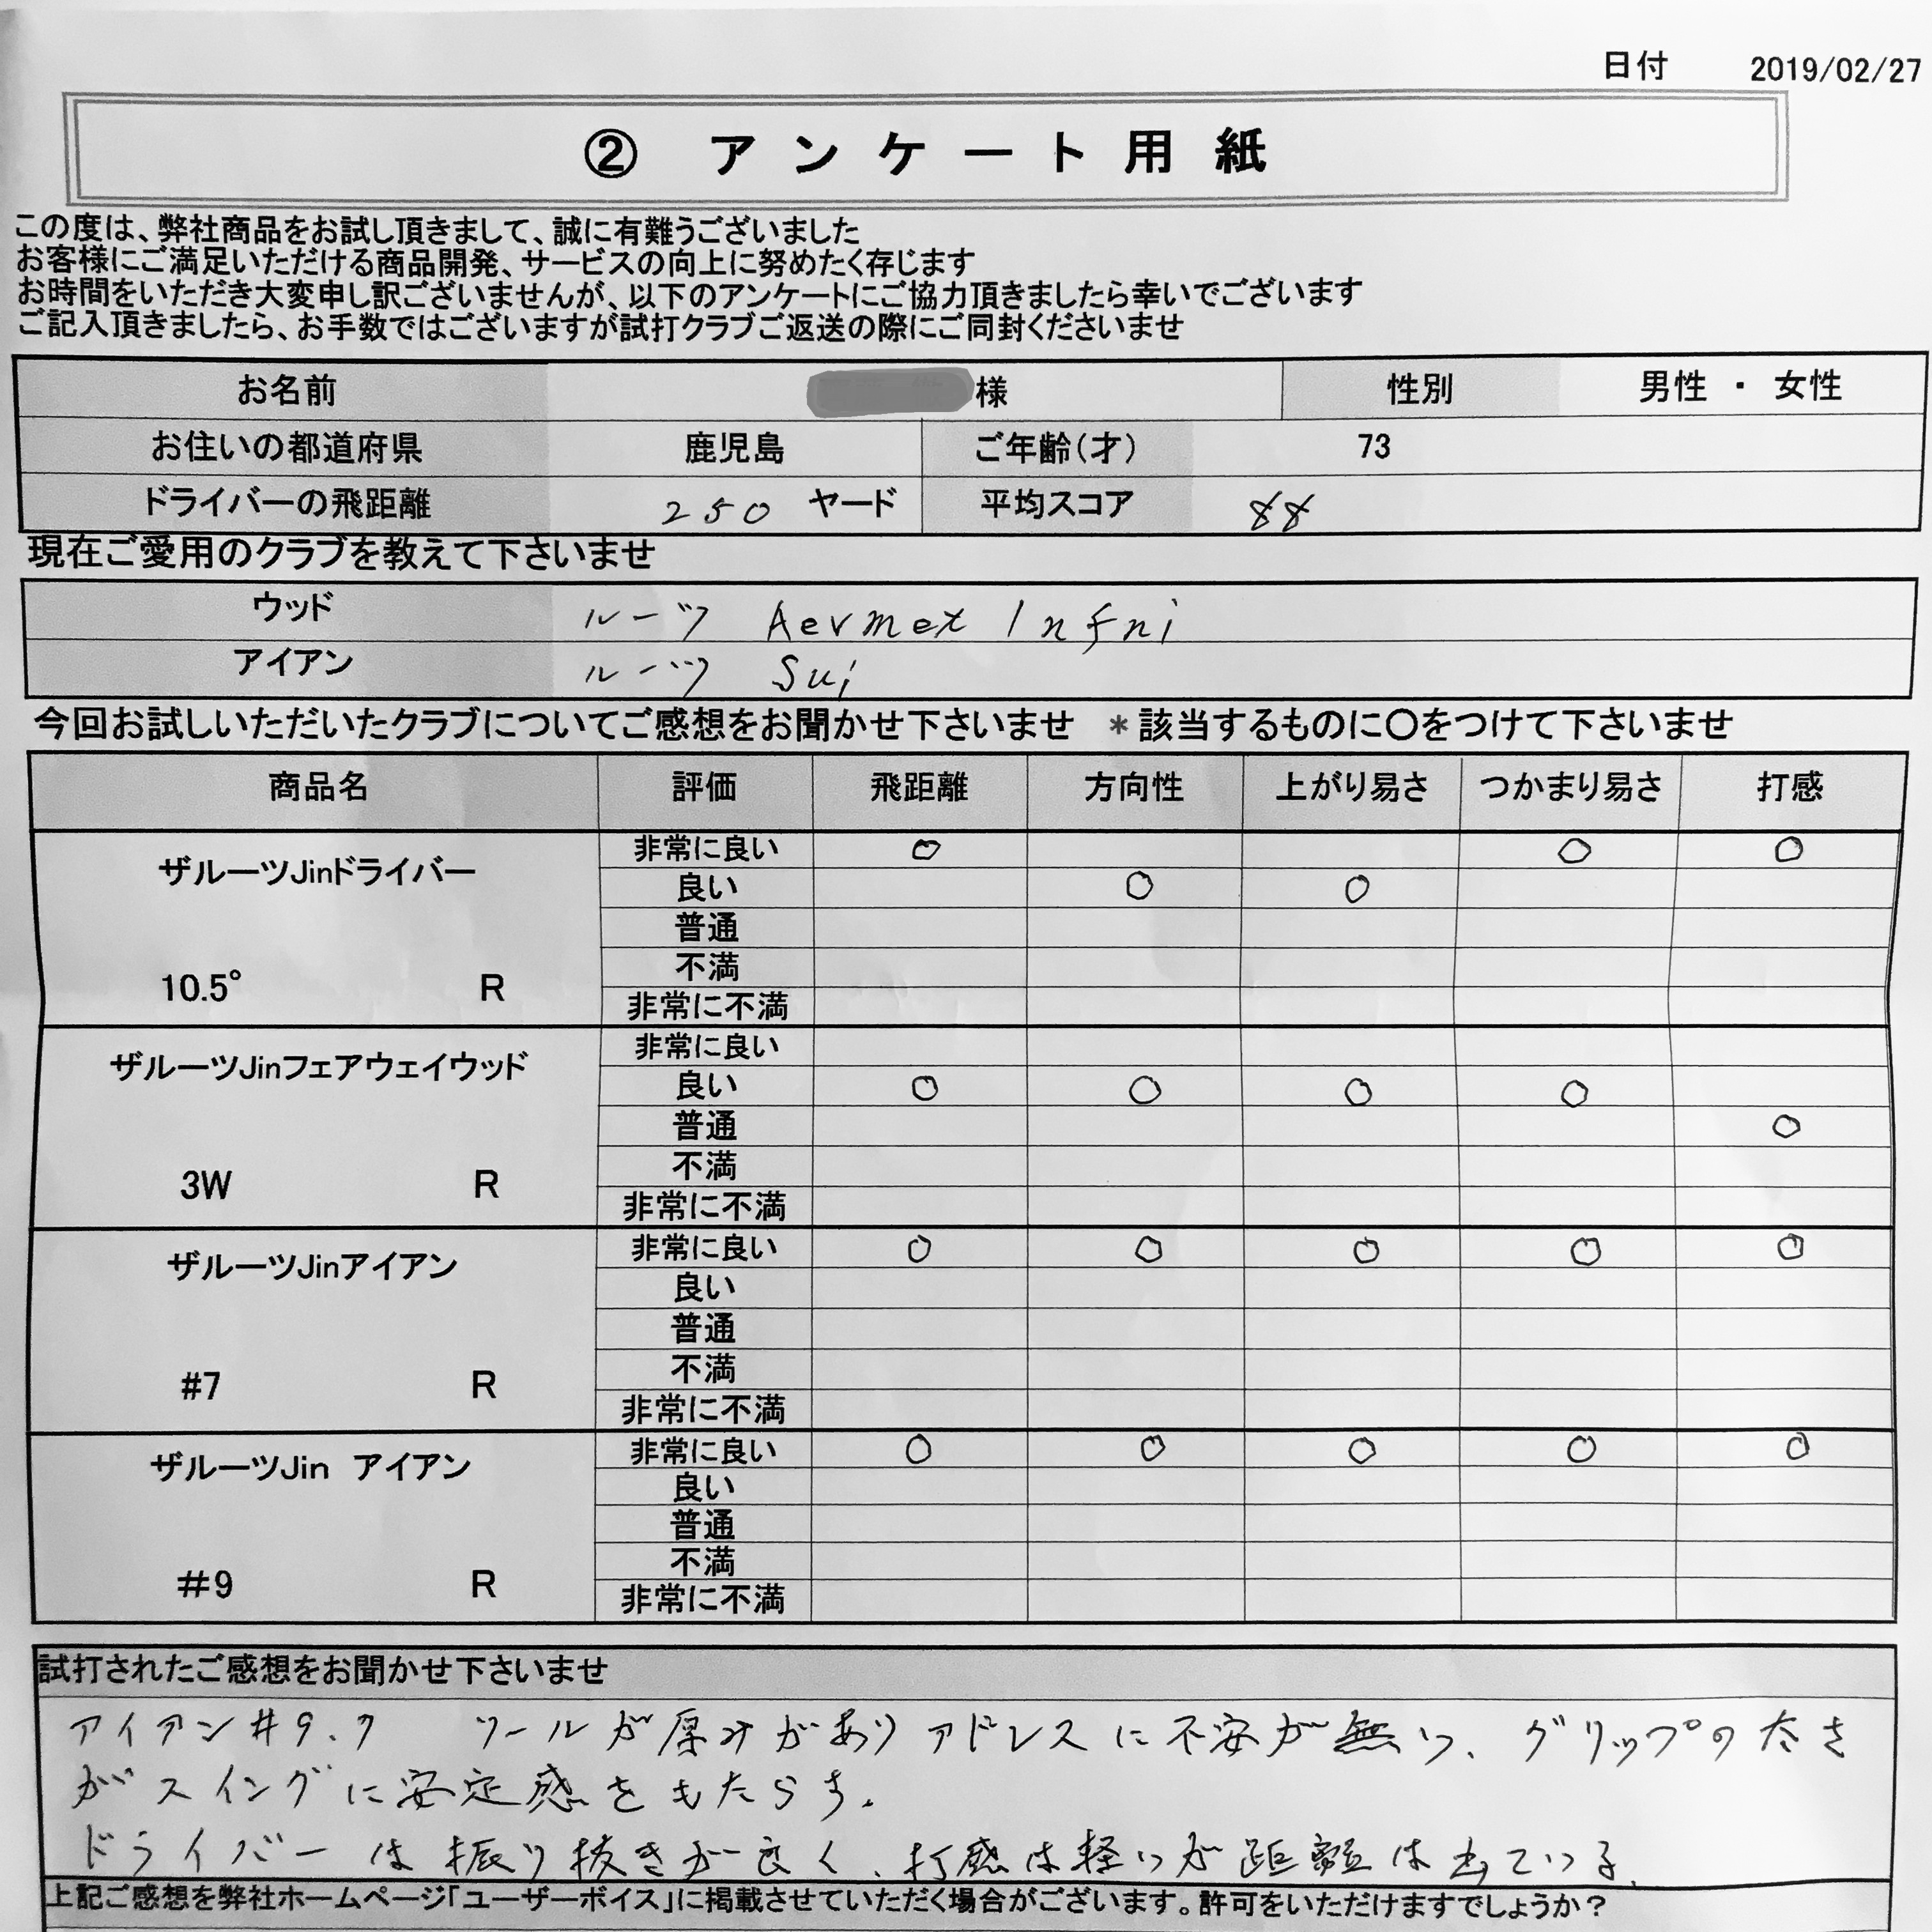 日付 2019/02/27
② アンケート用紙
この度は、弊社商品をお試し頂きまして、誠に有難うございました
お客様にご満足いただける商品開発、サービスの向上に努めたく存じます
お時間をいただき大変申し訳ございませんが、以下のアンケートにご協力頂きましたら幸いでございます
ご記入頂きましたら、お手数ではございますが試打クラブご返送の際にご同封くださいませ
お名前 様 性別 男性 ・ 女性
お住いの都道府県 鹿児島 ご年齢(才) 73
ドライバーの飛距離 250 ヤード 平均スコア 88
現在ご愛用のクラブを教えて下さいませ
ウッド ルーツ Aevmet Infni
アイアン ルーツ Sui
今回お試しいただいたクラブについてご感想をお聞かせ下さいませ *該当するものに〇をつけて下さいませ
商品名 評価 飛距離 方向性 上がり易さ つかまり易さ 打感
ザルーツJinドライバー
10.5° R
非常に良い ○ ○ ○
良い ○ ○
普通
不満
非常に不満
ザルーツJinフェアウェイウッド
3W R
非常に良い
良い ○ ○ ○ ○
普通 ○
不満
非常に不満
ザルーツJinアイアン
#7 R
非常に良い ○ ○ ○ ○ ○
良い
普通
不満
非常に不満
ザルーツJin アイアン
#9 R
非常に良い ○ ○ ○ ○ ○
良い
普通
不満
非常に不満
試打されたご感想をお聞かせ下さいませ
アイアン#9.7 ソールが厚みがありアドレスに不安が無い、グリップの太さ
がスイングに安定感をもたらす。
ドライバーは振り抜きが良く、打感は軽いが距離は出ている。
上記ご感想を弊社ホームページ「ユーザーボイス」に掲載させていただく場合がございます。許可をいただけますでしょうか?